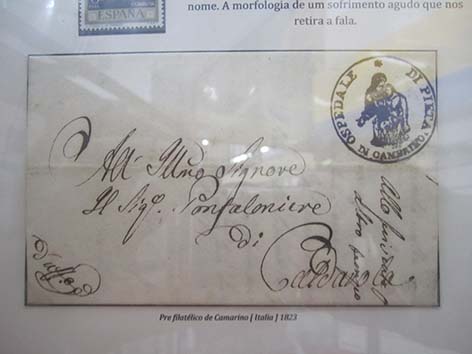 nome. A morfologia de um sofrimento agudo que nos
retira a fala.
ESPAÑA
OSPEDALE DI PIETA
IN CAMERINO
All' Illmo Signore
Il Sig. Gonfaloniere
di
Caldarola
Pre filatélico de Camarino [ Italia ] 1823